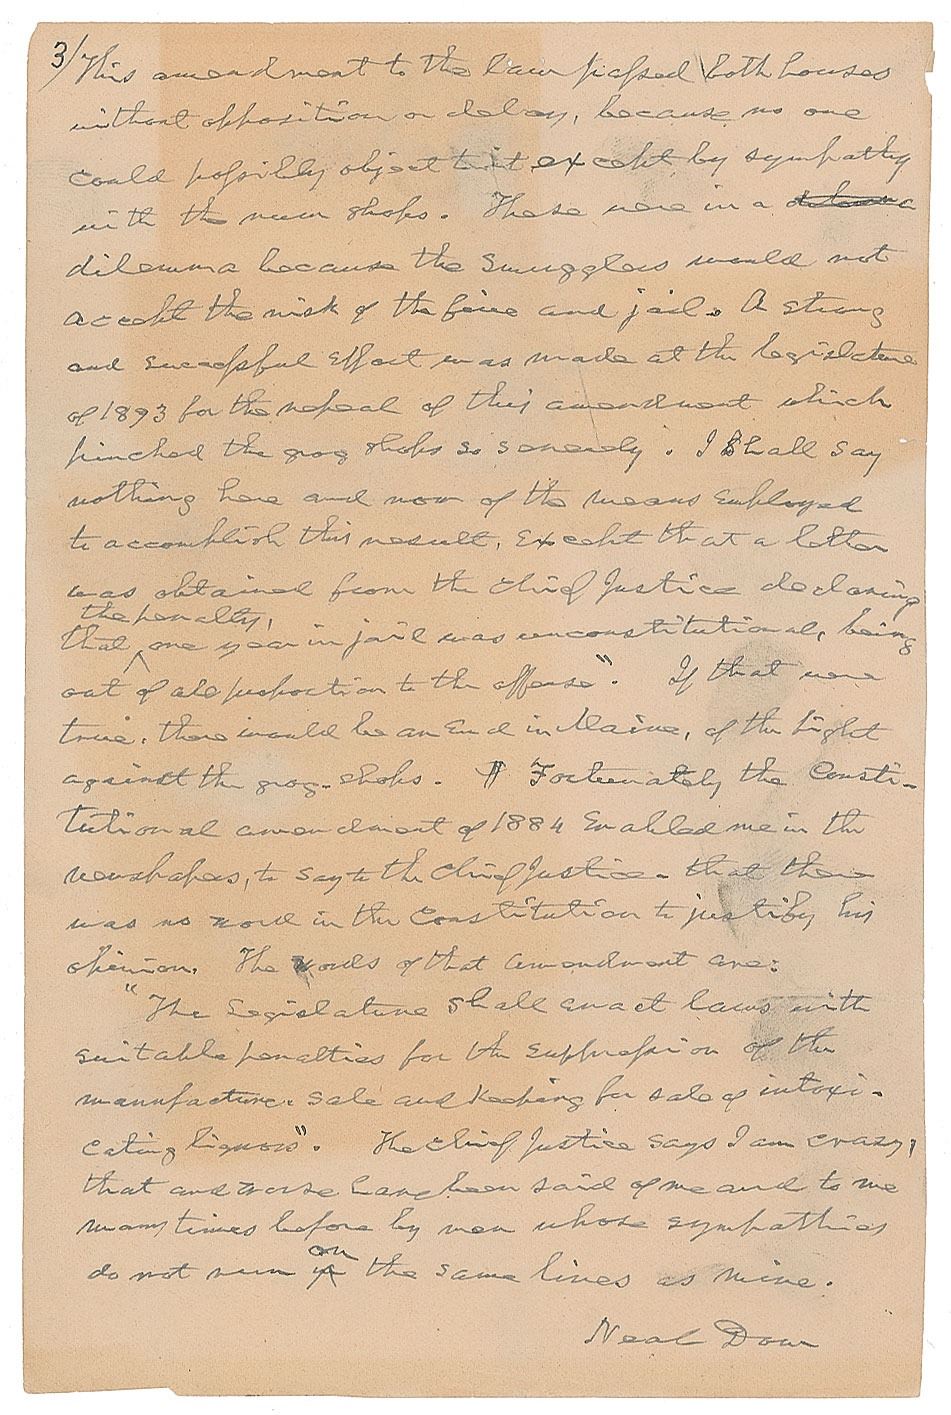 3/ This amendment to the law passed both houses
without opposition or delay, because no one
could possibly object to it except by sympathy
with the rum shops. These were in a
dilemma because the smugglers would not
accept the risk of the fine and jail. A strong
and successful effort was made at the legislature
of 1893 for the repeal of this amendment which
pinched the grog shops so severely. I shall say
nothing here and now of the means employed
to accomplish this result, except that a letter
was obtained from the Chief Justice declaring
the penalty,
that one year in jail was unconstitutional, being
out of all proportion to the offense". If that were
true, there would be an end in Maine, of the fight
against the grog-shops. ¶ Fortunately the Consti-
tutional amendment of 1884 enabled me in the
newspapers, to say to the Chief Justice - that there
was no word in the Constitution to justify his
opinion. The words of that amendment are:
"The Legislature shall enact laws with
suitable penalties for the suppression of the
manufacture, sale and keeping for sale of intoxi-
cating liquors". The Chief Justice says I am crazy,
that and worse have been said of me and to me
many times before by men whose sympathies
on
do not run the same lines as mine.
Neal Dow